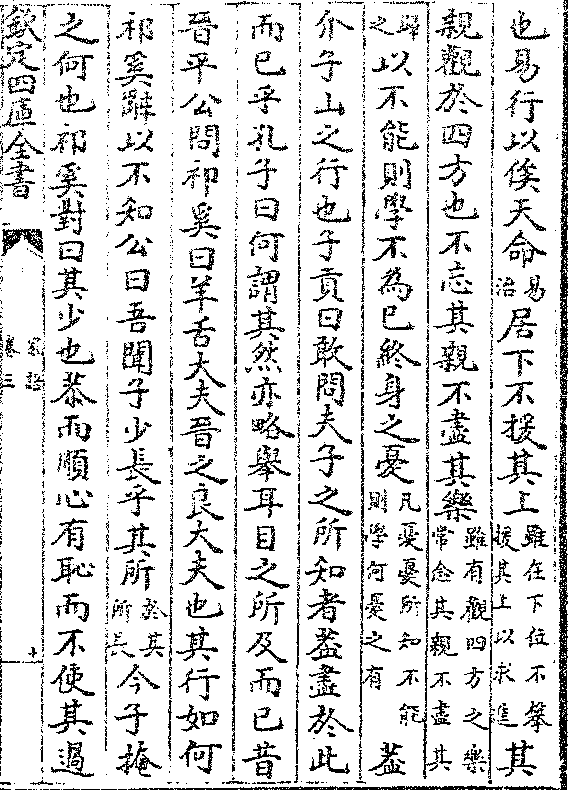 也易行以俟天命易治居下不援其上雖在下位不攀援其上以求進其
親觀於四方也不忘其親不盡其樂雖有觀四方之樂常念其親不盡其
歸之以不能則學不為已終身之憂凡憂憂所知不能則學何憂之有盖
介子山之行也子貢曰敢問夫子之所知者盖盡於此
而已乎孔子曰何謂其然亦略舉耳目之所及而已昔
晉平公問祁奚曰羊舌大夫晉之良大夫也其行如何
祁奚辭以不知公曰吾聞子少長乎其所於其所長今子掩
之何也祁奚對曰其少也恭而順心有恥而不使其過
欽定四庫全書
家語
卷三
十